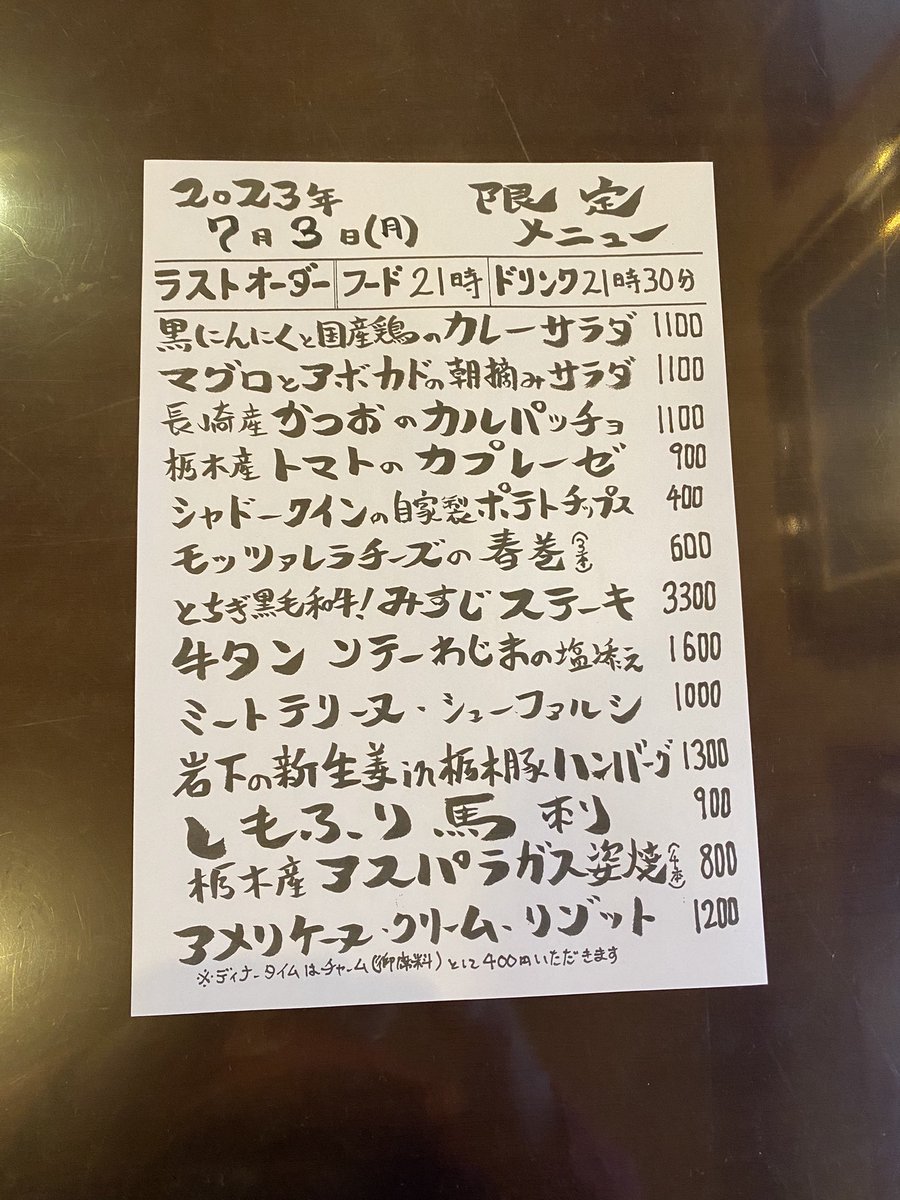 2023年 限定
7月3日(月) メニュー
ラストオーダー フード21時 ドリンク21時30分
黒にんにくと国産鶏のカレーサラダ 1100
マグロとアボカドの朝摘みサラダ 1100
長崎産 かつおのカルパッチョ 1100
栃木産 トマトのカプレーゼ 900
シャドークインの自家製ポテトチップス 400
モッツァレラチーズの春巻(3本) 600
とちぎ黒毛和牛!みすじステーキ 3300
牛タン ソテーわじまの塩添え 1600
ミートテリーヌ・シューファルシ 1000
岩下の新生姜in栃木豚ハンバーグ 1300
しもふり馬刺 900
栃木産 アスパラガス姿焼(4本) 800
アメリケーヌ・クリーム・リゾット 1200
※ディナータイムはチャーム(御席料)として400円いただきます